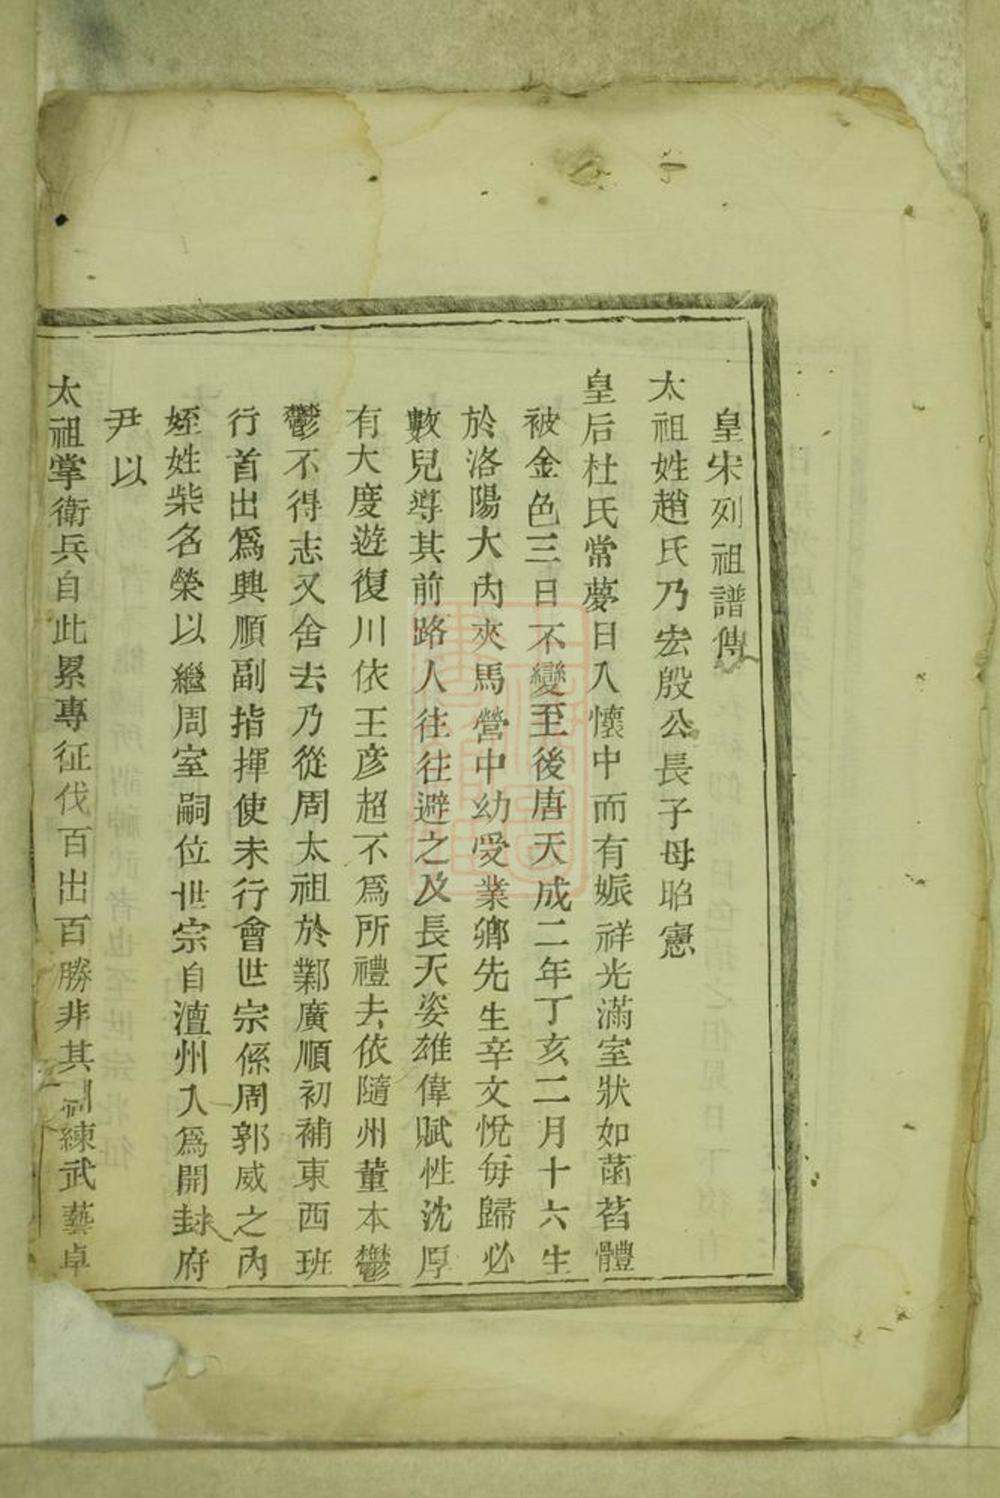 皇宋列祖譜傳
太祖姓趙氏乃宏殷公長子母昭憲
皇后杜氏常夢日入懷中而有娠祥光滿室狀如菡萏體
被金色三日不變至後唐天成二年丁亥二月十六生
於洛陽大內夾馬營中幼受業鄉先生辛文悅每歸必
數兒導其前路人往往避之及長天姿雄偉賦性沈厚
有大度遊復川依王彥超不爲所禮去依隨州董本鬱
鬱不得志又舍去乃從周太祖於鄴廣順初補東西班
行首出爲興順副指揮使未行會世宗係周郭威之內
姪姓柴名榮以繼周室嗣位世宗自澶州入爲開封府
尹以
太祖掌衛兵自此累專征伐百出百勝非其訓練武藝卓